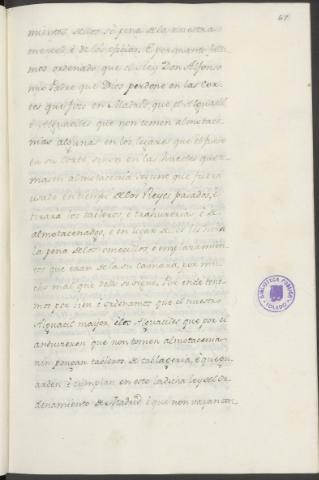 67
mientos dellos so pena de la nuestra
merced, è de los oficios. E por quanto falla
mos ordenado que el Rey Don Alfonso
mio Padre que Dios perdone en las Cor
tes que fizo en Madrid, que el Alguacil
è Alguaciles que non tomen almotace
nias algunas en los lugares que
en su Corte, salvo en las Huestes que
masen almotacenia segunt que fuera
usado en tiempo de los Reyes pasados, è
tirara los tableros, è è de
almotacenados, è en lugar de
la pena de los omecillos, è emplazamien
tos que eran de la su Camara, por mu
cho mal que dello se sigue. Por ende tene
mos por bien è ordenamos que el nuestro
Alguacil mayor, è los Alguaciles que por el
andovieren que non tomen almotacenia
nin pongan tablero de tablageria, è que gu
arden è cumplan en esto la dicha ley del Or
denamiento de Madrid è que non vayan con
BIBLIOTECA PUBLICA
TOLEDO